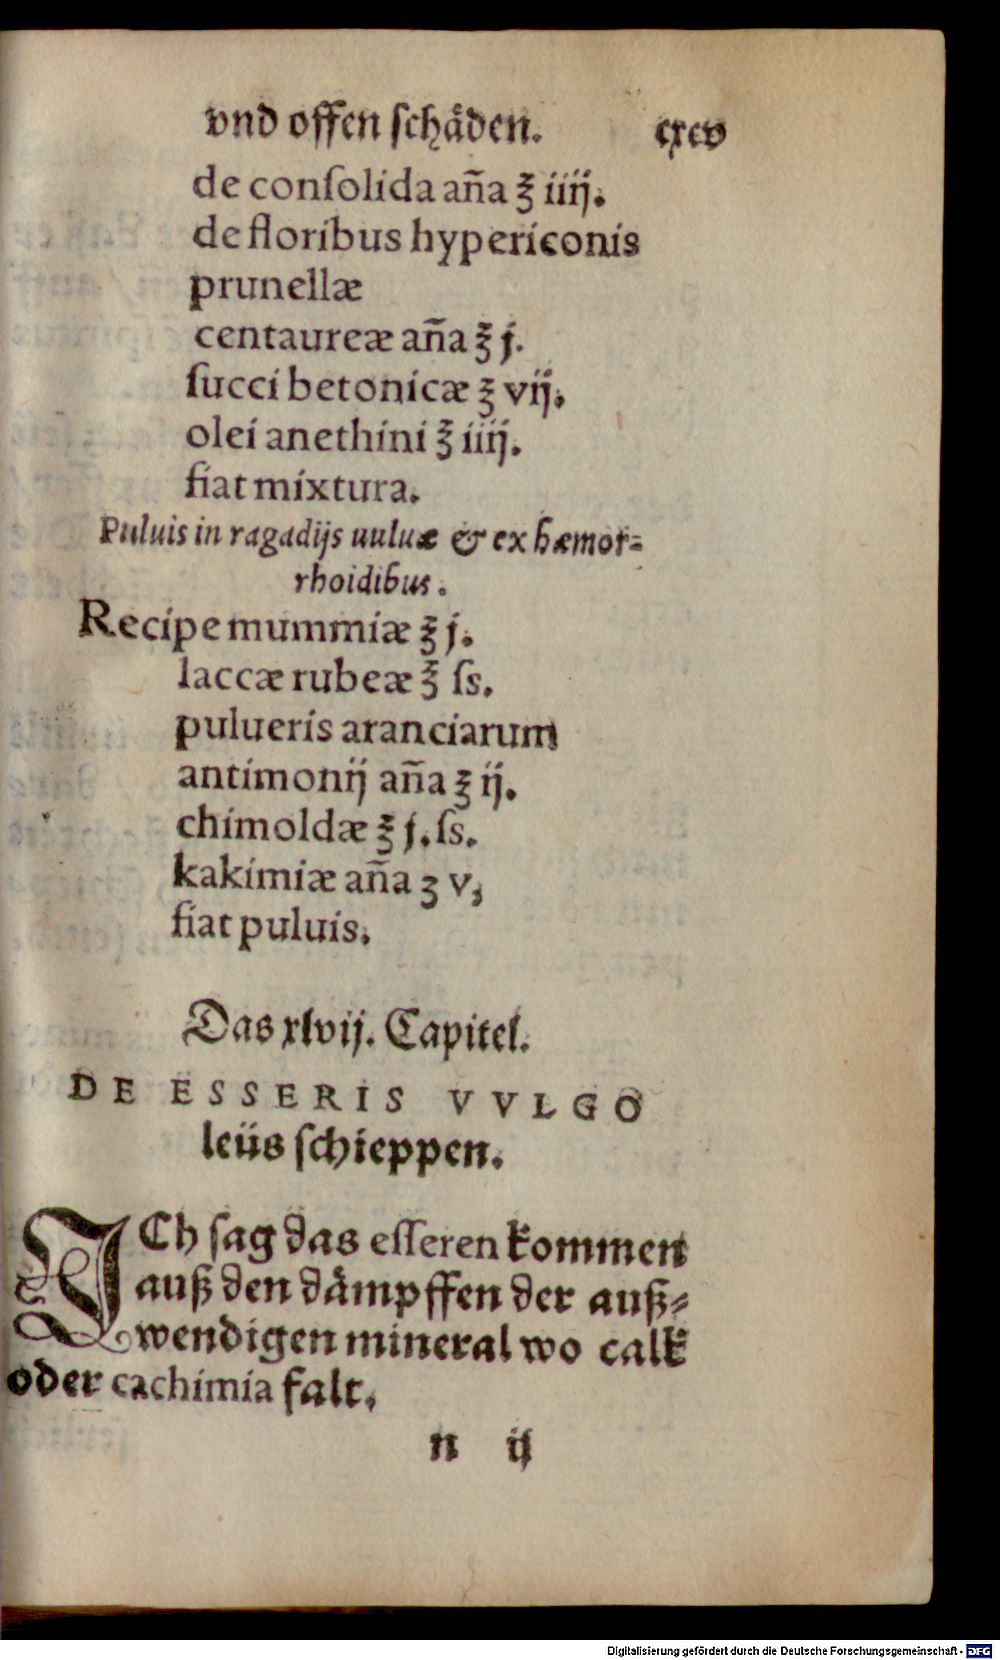 vnd offen ſchaͤden. cxcv
de conſolida an̄a ℥ iiij.
de floribus hypericonis
prunellæ
centaureæ an̄a ℥ j.
ſucci betonicæ ℥ vij.
olei anethini ℥ iiij.
fiat mixtura.
Puluis in ragadijs uuluæ & ex hæmor⸗
rhoidibus.
Recipe mummiæ ℥ j.
laccæ rubeæ ℥ ſs.
pulueris aranciarum
antimonij an̄a ℥ ij.
chimoldæ ℥ j. ſs.
kakimiæ an̄a ʒ v,
fiat puluis.
Das xlvij. Capitel.
DE ESSERIS VVLGO
leüs ſchieppen.
ICh ſag das eſſeren kommen
auß den daͤmpffen der auß⸗
wendigen mineral wo calk
oder cachimia falt.
n ij
Digitalisierung gefördert durch die Deutsche Forschungsgemeinschaft - DFG